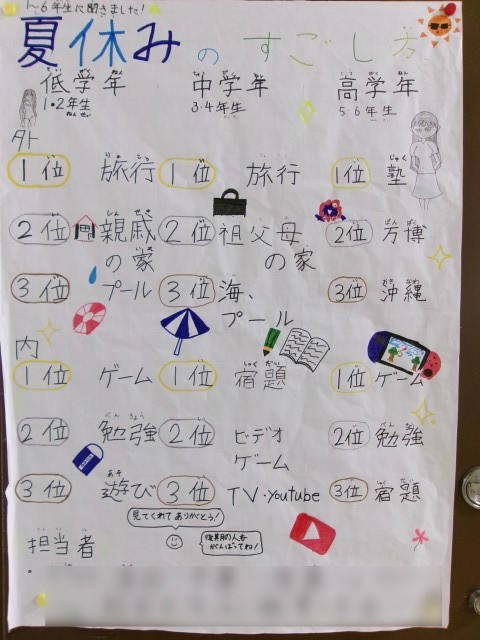 1~6年生に聞きました!
夏休みのすごし方
低学年 中学年 高学年
1・2年生 3・4年生 5・6年生
ねんせい
外
1位 旅行 1位 旅行 1位 塾
2位 親戚の家 2位 祖父母の家 2位 万博
3位 プール 3位 海、プール 3位 沖縄
内
1位 ゲーム 1位 宿題 1位 ゲーム
2位 勉強 2位 ビデオゲーム 2位 勉強
3位 遊び 3位 TV・Youtube 3位 宿題
見てくれてありがとう!
後期の人もがんばってね!
担当者